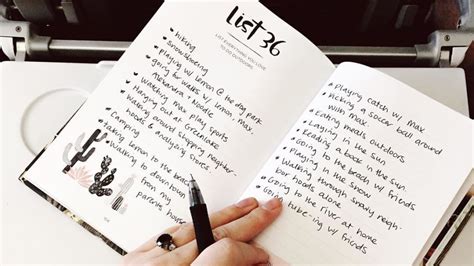 List 36
LIST EVERYTHING YOU LOVE
TO DO OUTDOORS
hiking
snowshoeing
playing w/ lemon @ the dog park
going for walks w/ lemon, max,
Alexandra + Noodle
Watching max play sports
Hanging out at Greenlake
Walking around stopping neighbor-
hoods & analyzing stores
Camping
taking lemon to the beach
Walking to downtown
from my
parents house
Playing catch w/ Max
Kicking a soccer ball around
with max.
Eating meals outdoors
Lounging in the sun
Reading a book in the sun
Going to the beach w/ friends
Playing in the snow
Walking through snowy neigh-
bor hoods alone
Going to the river at home
Going tube-ing w/ friends